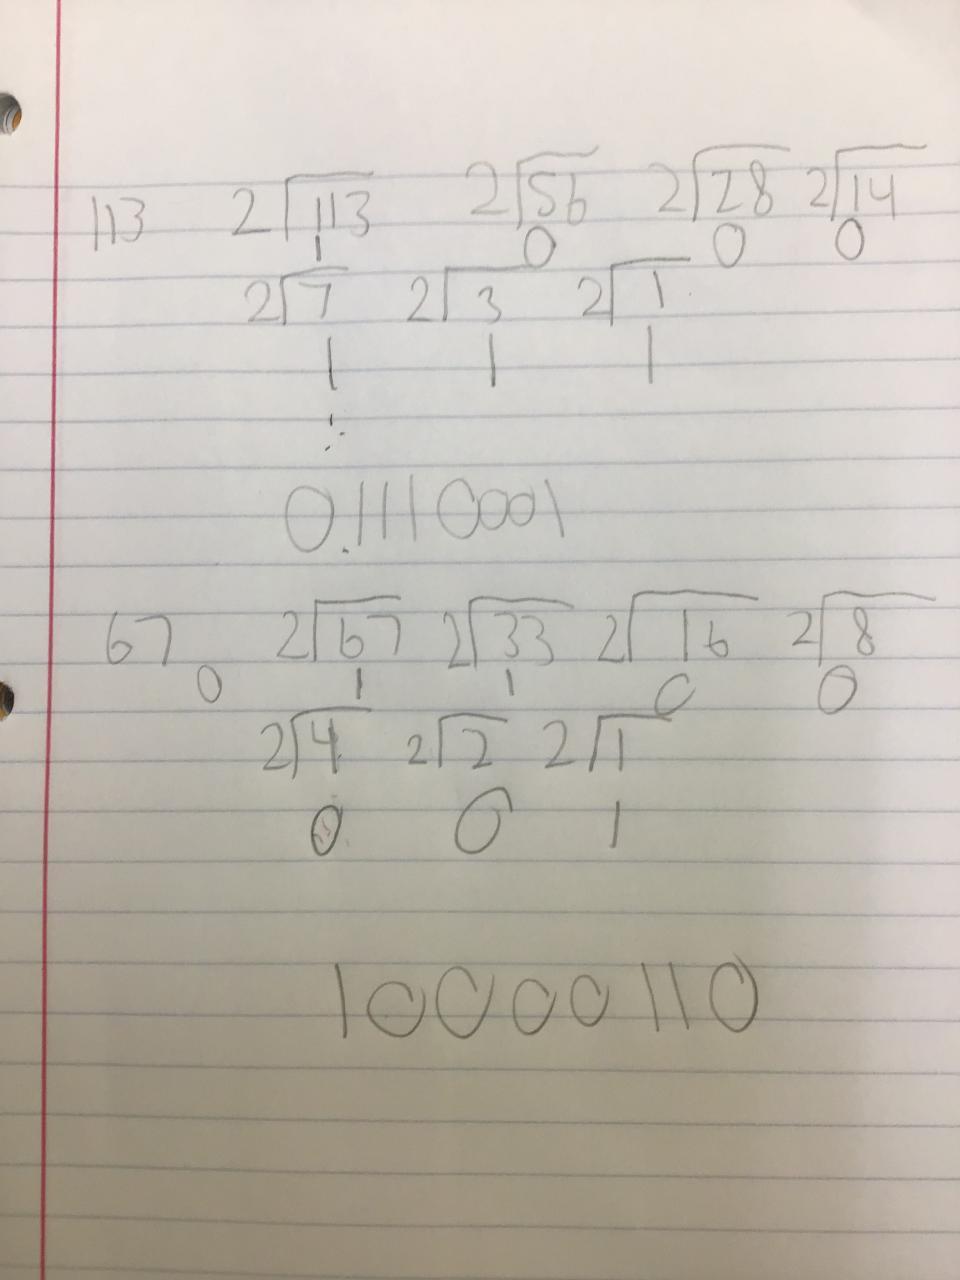 113 2√113 2√56 2√28 2√14
1 0 0 0
2√7 2√3 2√1
1 1 1
0.1110001
67 2√67 2√33 2√16 2√8
0 1 1 0 0
2√4 2√2 2√1
0 0 1
10000110